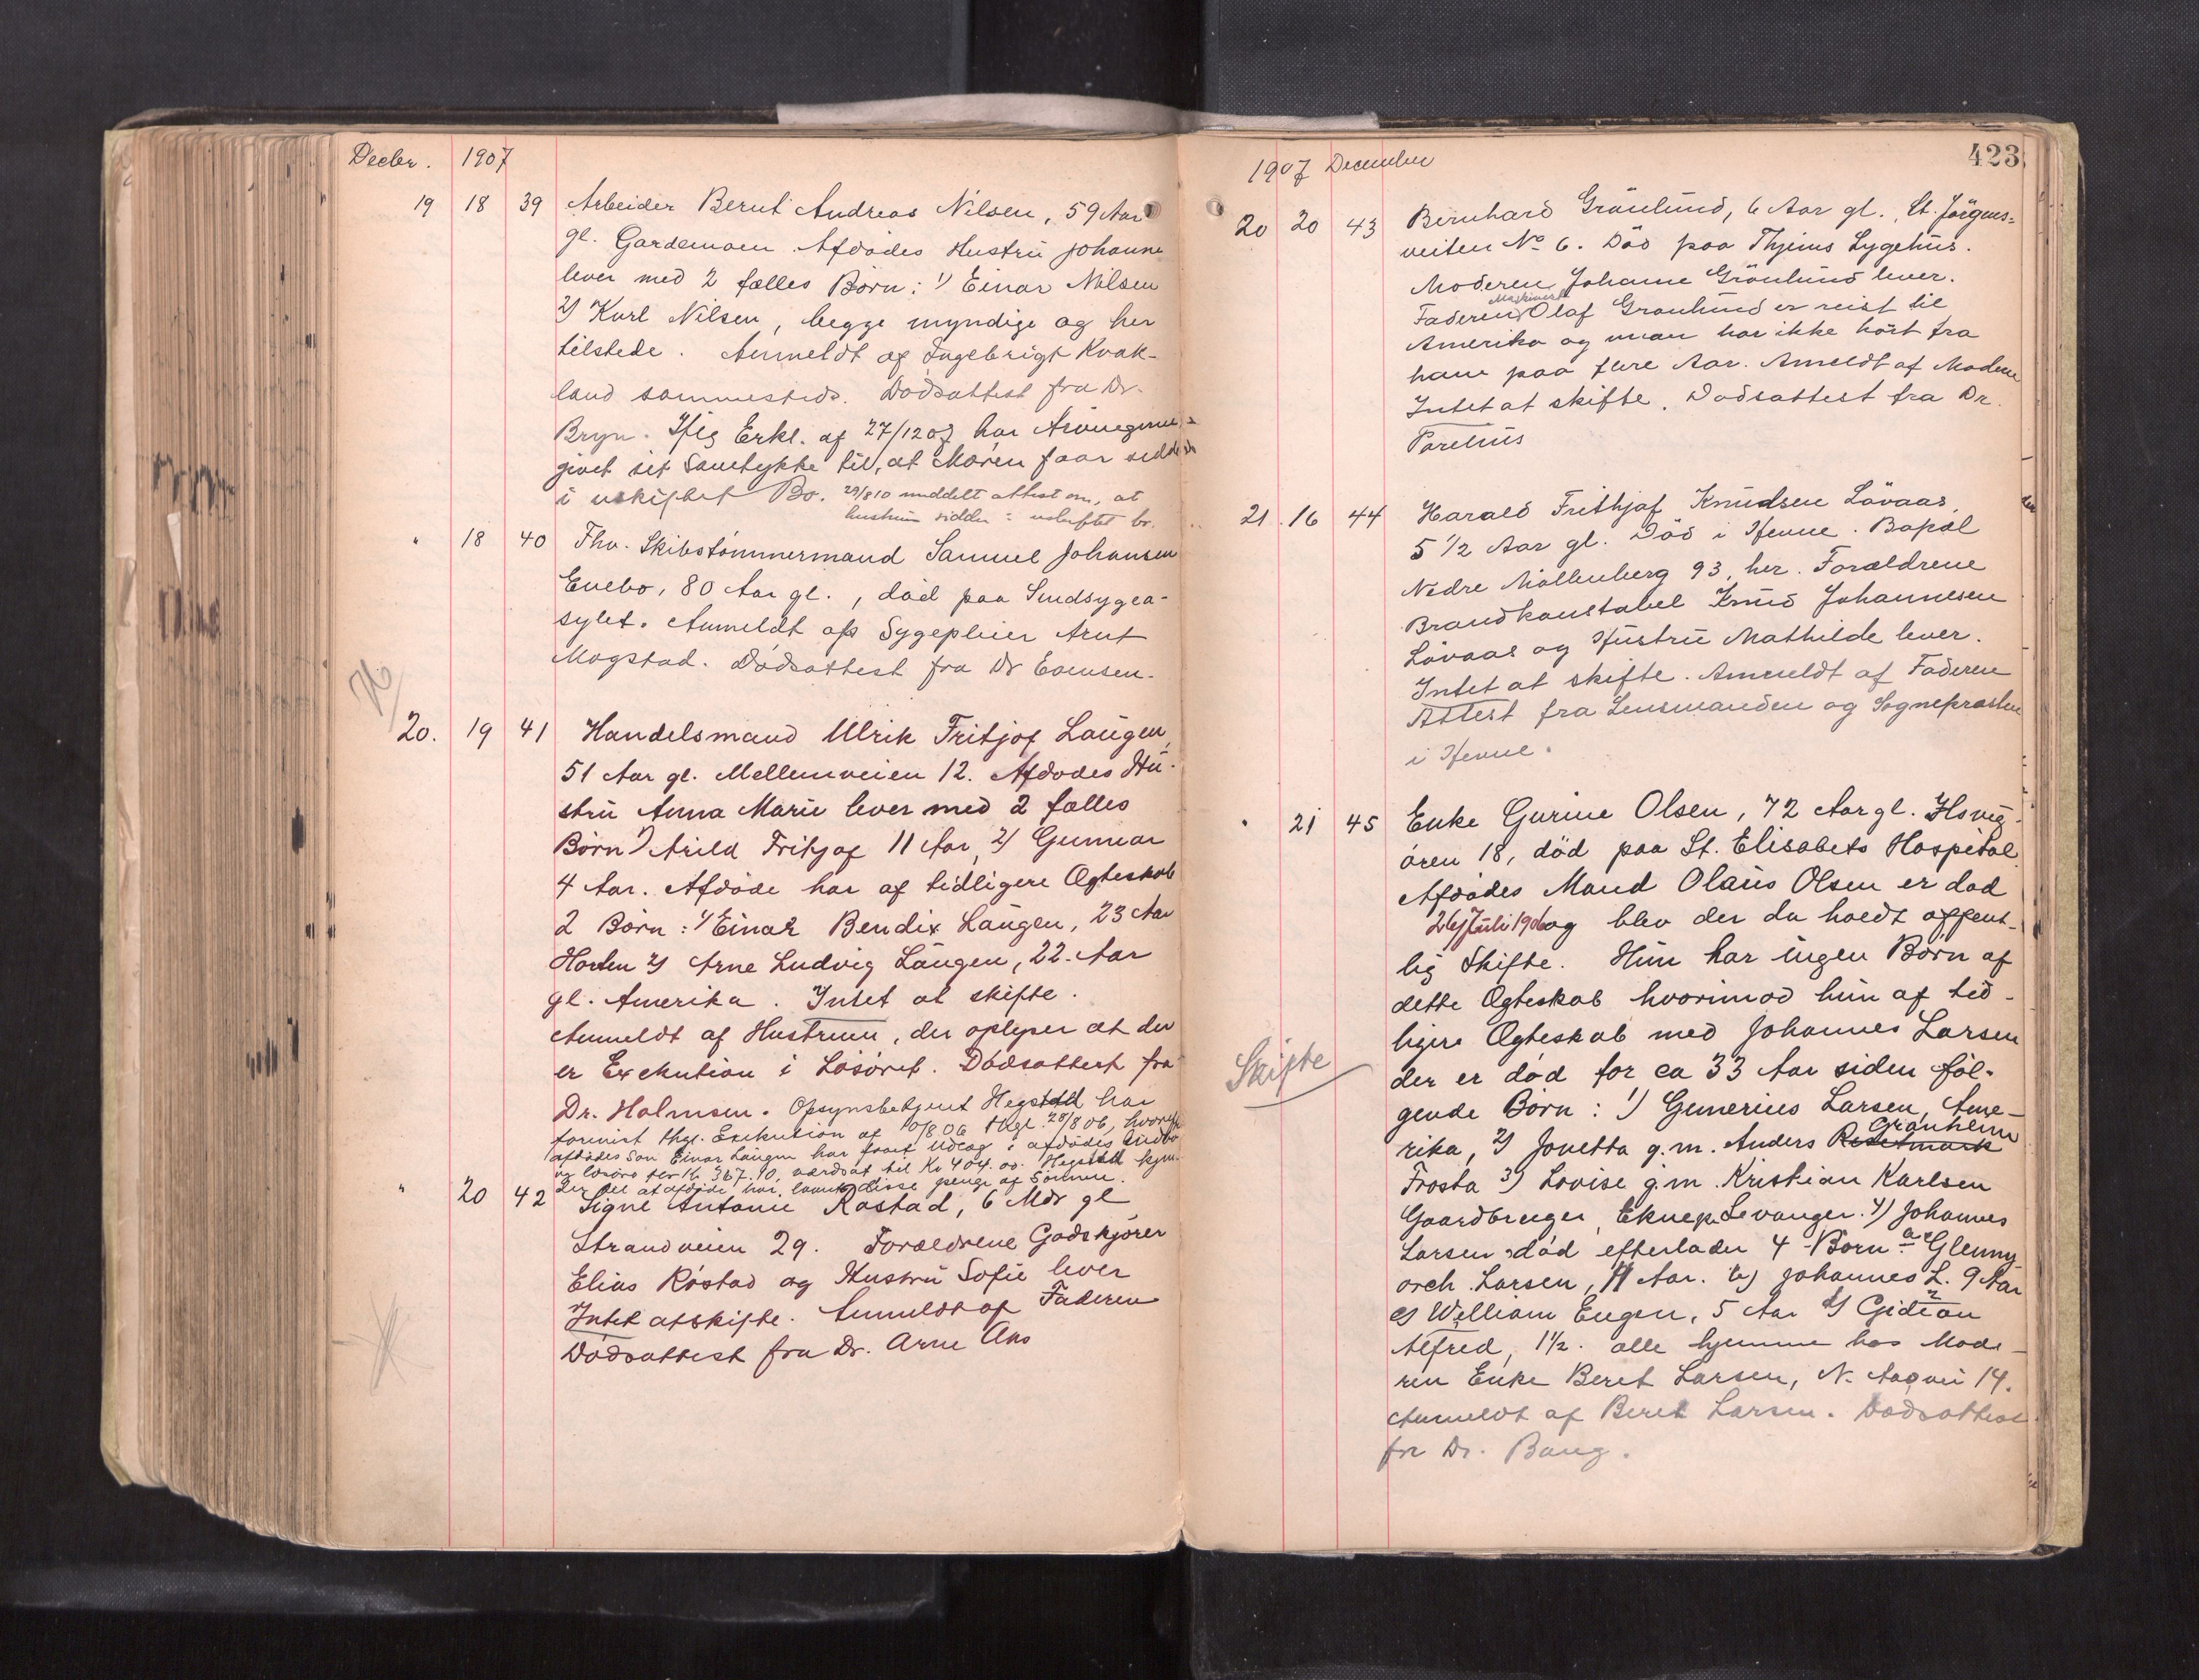 Decbr. 1907
19 18 39 Arbeider Bernt Andreas Nilsen, 59 Aar
gl. Gardemoen. Afdødes Hustru Johanne
lever med 2 fælles Børn: 1) Einar Nilsen
2) Karl Nilsen, begge myndige og her
tilstede. Anmeldt af Ingebrigt Kvak-
land sammesteds. Dødsattest fra Dr.
Bryn. Iflg Erkl. af 27/12 07 har Arvingerne
givet sit Samtykke til, at Moren faar sidde
i uskiftet Bo. 29/8 10 meddelt attest om, at
hustruen sidder i uskiftet bo.
" 18 40 Fhv. Skibstømmermand Samuel Johansen
Enebo, 80 Aar gl., død paa Sindsygea-
sylet. Anmeldt af Sygepleier Arnt
Mogstad. Dødsattest fra Dr
20. 19 41 Handelsmand Ulrik Fritjof Laugen,
51 Aar gl. Mellemveien 12. Afdødes Hu-
stru Anna Marie lever med 2 fælles
Børn 1) Arild Fritjof 11 Aar, 2) Gunnar
4 Aar. Afdøde har af tidligere Ægteskab
2 Børn: 1) Einar Bendix Laugen, 23 Aar
Horten 2) Arne Ludvig Laugen, 22 Aar
gl. Amerika. Intet at skifte.
Anmeldt af Hustruen, der oplyser at der
er Exekution i Løsøret. Dødsattest fra
Dr. Holmsen. Opsynsbetjent Hegstad har
forevist thgl. Exekution af 10/8 06 thgl. 28/8 06, hvorefter
afdødes Søn Einar Laugen har faaet Udlæg i afdødes Indbo
og løsøre for Kr. 367.10, værdsat til Kr 404.00. Hegstad
til at afdøde har laant disse penge af Sønnen.
" 20 42 Signe Antonie Røstad, 6 Mdr gl
Strandveien 29. Forældrene Godskjører
Elias Røstad og Hustru Sofie lever
Intet at skifte. Anmeldt af Faderen
Dødsattest fra Dr. Arne Aas
1907 December 423
20 20 43 Bernhard Grönlund, 6 Aar gl., St. Jörgens-
veiten No 6. Død paa Thjems Sygehus.
Moderen Johanne Grönlund lever.
Faderen Maskinist Olaf Grönlund er reist til
Amerika og man har ikke hört fra
ham paa flere Aar. Anmeldt af Moderen
Intet at skifte. Dødsattest fra Dr.
Parelius
21. 16 44 Harald Frithjof Knudsen Lövaas,
5 1/2 Aar gl. Död i Hevne. Bopæl
Nedre Möllenberg 93, her. Forældrene
Brandkonstabel Knud Johannesen
Lövaas og Hustru Mathilde lever.
Intet at skifte. Anmeldt af Faderen
Attest fra Lensmanden og Sognepresten
i Hevne.
" 21 45 Enke Gurine Olsen, 72 Aar gl. Ilsvig-
ören 18, död paa St. Elisabets Hospital
Afdödes Mand Olaus Olsen er död
26/Juli 1906 og blev der da holdt offent-
lig Skifte. Hun har ingen Börn af
dette Ægteskab hvorimod hun af tid-
ligere Ægteskab med Johannes Larsen
Skifte
der er död for ca 33 Aar siden föl-
gende Börn: 1) Gunerius Larsen, Ame-
rika, 2) Jonetta g.m. Anders Granheim
Frosta 3) Lovise g.m. Kristian Karlsen
Gaardbruger, Eknep. Levanger. 4) Johannes
Larsen död efterlader 4 Börn a) Glenny
orch Larsen, 11 Aar. b) Johannes L. 9 Aar
c) William Eugen, 5 Aar d) Gideon
Alfred, 1 1/2. alle hjemme hos Mode-
ren Enke Beret Larsen, N. 14.
Anmeldt af Beret Larsen. Dødsattest
fra Dr. Bang.